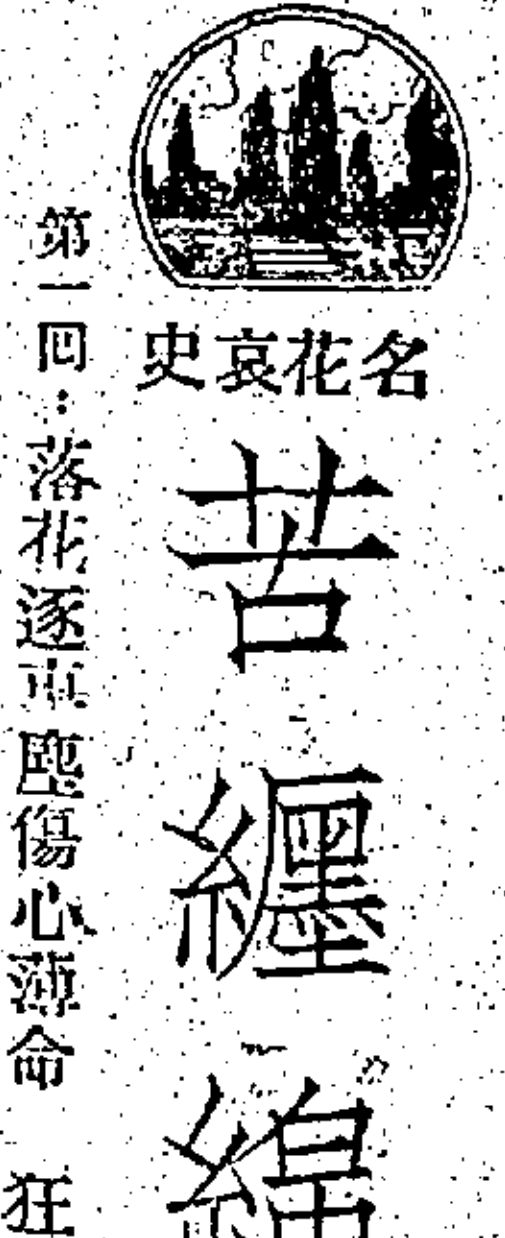 名花哀史
苦纏綿
第一囘：落花逐車塵傷心薄命　狂